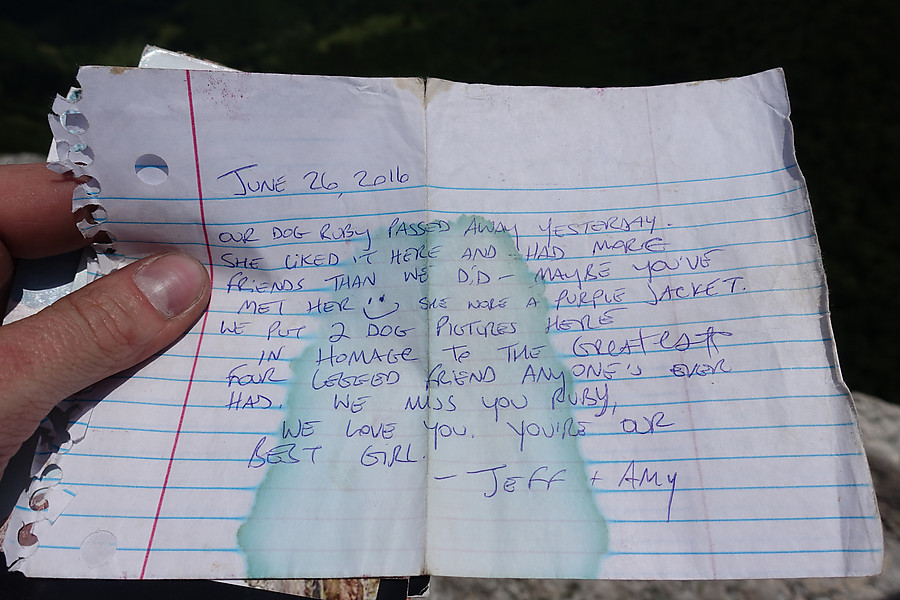 JUNE 26, 2016
OUR DOG RUBY PASSED AWAY YESTERDAY.
SHE LIKED IT HERE AND HAD MORE
FRIENDS THAN WE DID - MAYBE YOU'VE
MET HER :) SHE WORE A PURPLE JACKET.
WE PUT 2 DOG PICTURES HERE
IN HOMAGE TO THE GREATEST
FOUR LEGGED FRIEND ANYONE'S EVER
HAD. WE MISS YOU RUBY,
WE LOVE YOU. YOU'RE OUR
BEST GIRL.
- JEFF + AMY